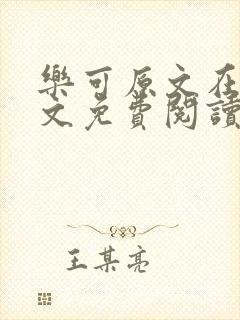 樂可原文在
文免費閱讀
王某亮